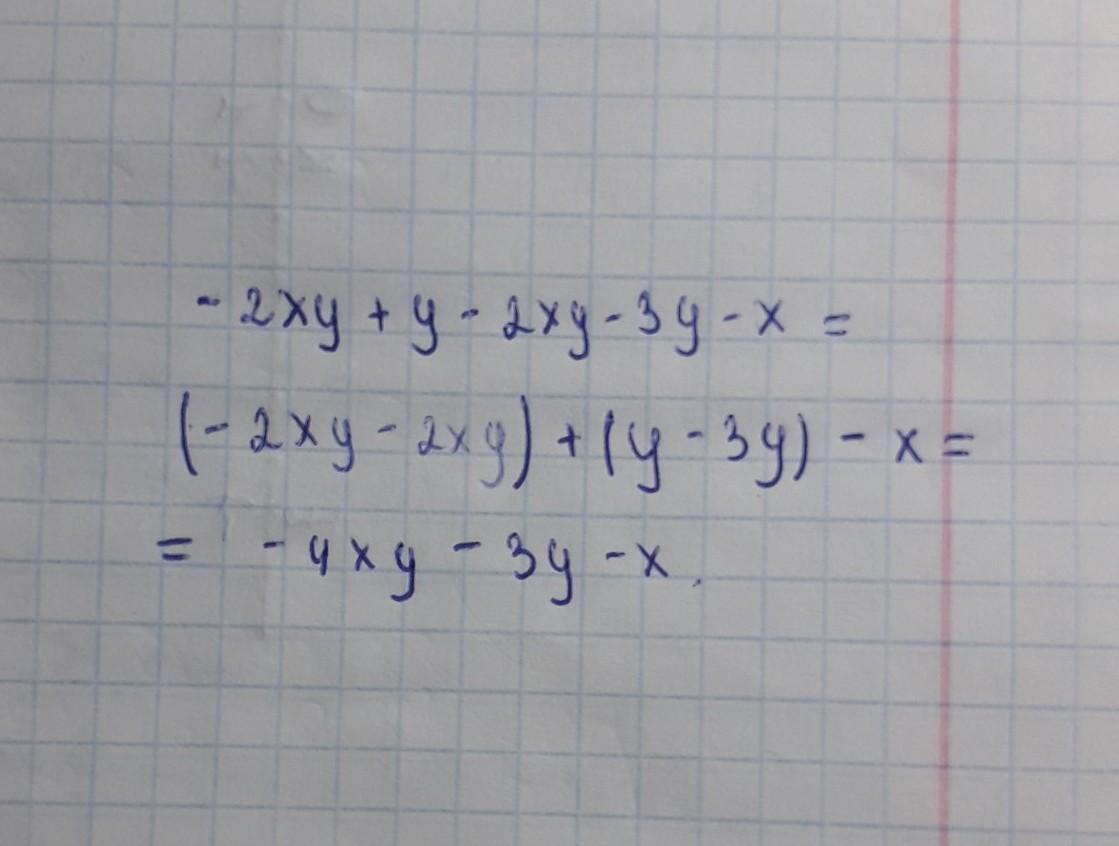 - 2xy + y - 2xy - 3y - x =
(- 2xy - 2xy) + (y - 3y) - x =
= - 4xy - 3y - x.